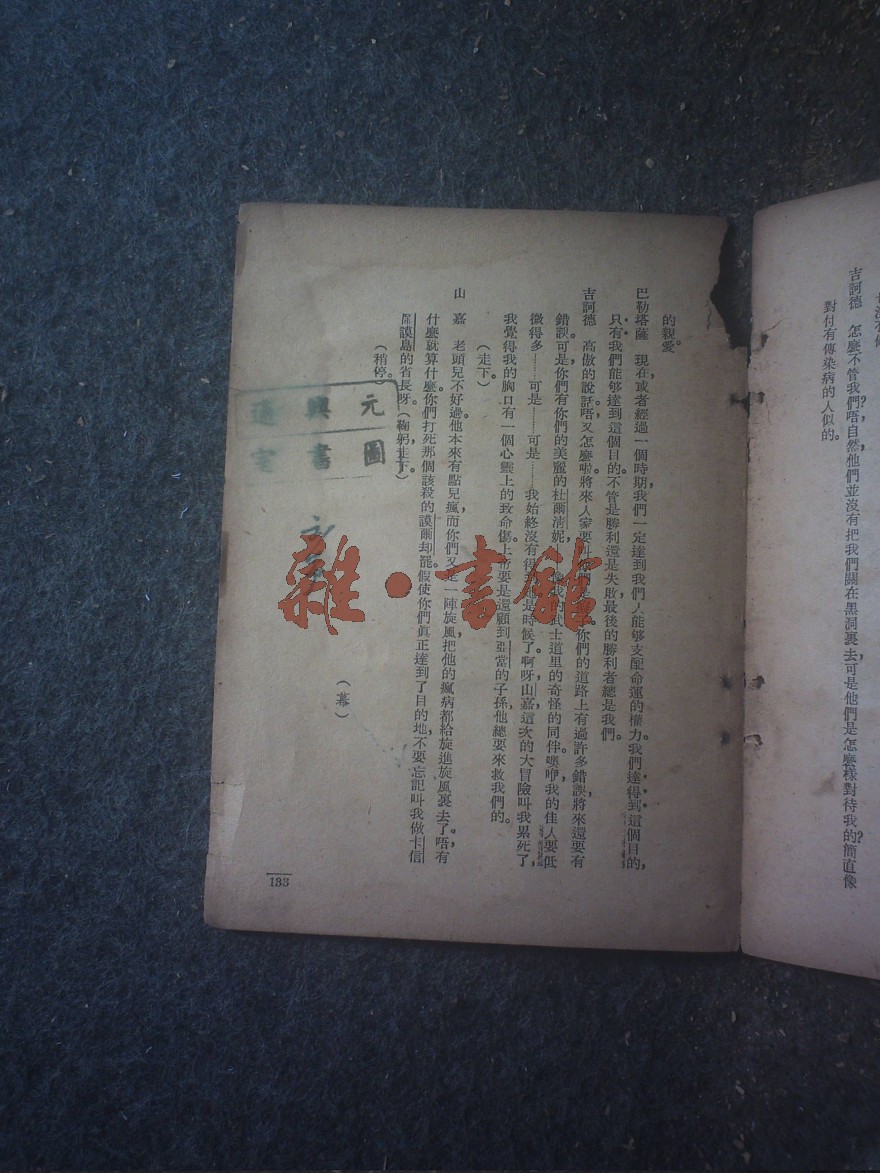 吉訶德　怎麼不管我們？唔，自然，他們並沒有把我們關在黑洞裏去，可是他們是怎麼樣對待我的？簡直像
對付有傳染病的人似的。
的親愛。
巴勒塔薩　現在，或者經過一個時期，我們一定達到我們人能够支配命運的權力。我們達得到這個目的，
只有我們能够達到這個目的。不管是勝利還是失敗，最後的勝利者總是我們。
吉訶德　高傲的說話。唔，又怎麼啦？將來人家要叫 你們的道路上有過許多錯誤，將來還要有
錯誤。可是，你們有你們的美麗的杜爾清妮 武士道里的奇怪的同伴。噢咿，我的佳人要低
微得多………可是………可是………我始終沒有得 是時候了。啊呀，山嘉，這次的大冒險叫我累死了，
我覺得我的胸口有一個心靈上的致命傷。上帝要是還顧到亞當的子孫，他總要來救我們的。
（走下。）
山　嘉　老頭兒不好過。他本來有點兒瘋，而你們又是一陣旋風，把他的瘋病都給旋進旋風裏去了。唔，有
什麼就算什麼。你們打死那個該殺的謨爾却罷。假使你們眞正達到了目的地，不要忘記叫我做卡信
謨島的省長呀。（鞠躬，走下。）
（稍停。）
（幕）
133
元興
圖書
雜·書館